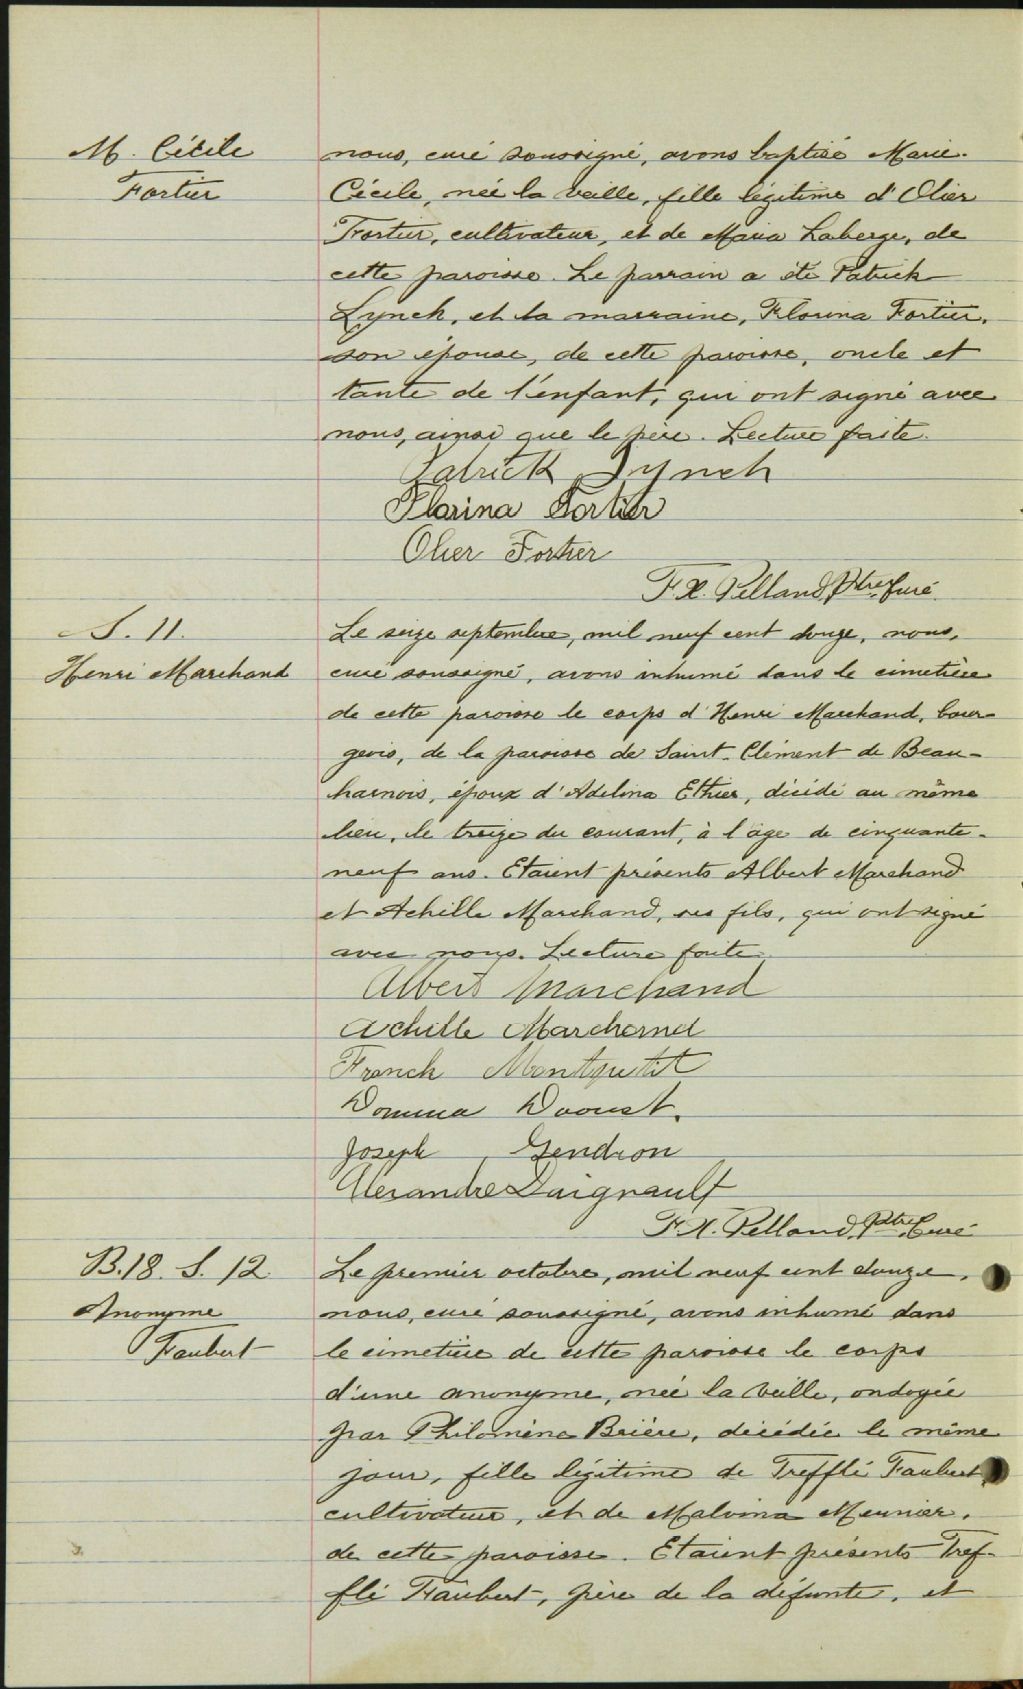 M. Cécile
Fortier
nous, curé soussigné, avons baptisé Marie-
Cécile, née la veille, fille légitime d'Olier
Fortier, cultivateur, et de Maria Laberge, de
cette paroisse. Le parrain a été Patrick
Lynch, et la marraine, Florina Fortier,
son épouse, de cette paroisse, oncle et
tante de l'enfant, qui ont signé avec
nous, ainsi que le père. Lecture faite.
Patrick Lynch
Florina Fortier
Olier Fortier
F. X. Pelland, Ptre, Curé.
S. 11.
Henri Marchand
Le seize septembre, mil neuf cent douze, nous,
curé soussigné, avons inhumé dans le cimetière
de cette paroisse le corps d'Henri Marchand, bour-
geois, de la paroisse de Saint-Clément de Beau-
harnois, époux d'Adelina Ethier, décédé au même
lieu, le treize du courant, à l'âge de cinquante-
neuf ans. Etaient présents Albert Marchand
et Achille Marchand, ses fils, qui ont signé
avec nous. Lecture faite.
Albert Marchand
Achille Marchand
Franck Montpetit
Domina Daoust.
Joseph Gendron
Alexandre Daignault
F. X. Pelland, Ptre, Curé
B. 18. S. 12
Anonyme
Faubert
Le premier octobre, mil neuf cent douze,
nous, curé soussigné, avons inhumé dans
le cimetière de cette paroisse le corps
d'une anonyme, née la veille, ondoyée
par Philomène Brière, décédée le même
jour, fille légitime de Trefflé Faubert,
cultivateur, et de Malvina Meunier,
de cette paroisse. Etaient présents Tref-
flé Faubert, père de la défunte, et